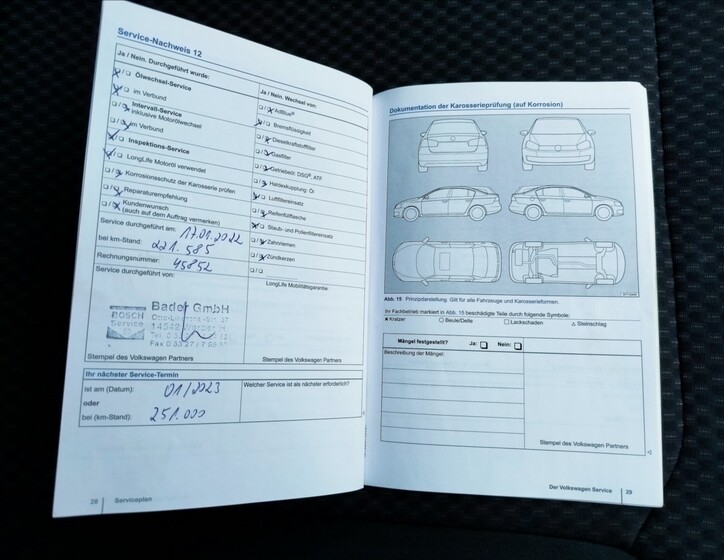 Service-Nachweis 12
Ja / Nein. Durchgeführt wurde:
Ölwechsel-Service
im Verbund
Intervall-Service
inklusive Motorölwechsel
im Verbund
Inspektions-Service
LongLife Motoröl verwendet
Korrosionsschutz der Karosserie prüfen
Reparaturempfehlung
Kundenwunsch
(auch auf dem Auftrag vermerken)
Service durchgeführt am: 17.01.2022
bei km-Stand: 221.585
Rechnungsnummer: 45852
Service durchgeführt von:
BOSCH
Service
Bader GmbH
14542
Stempel des Volkswagen Partners
Ja / Nein. Wechsel von:
AdBlue®
Bremsflüssigkeit
Dieselkraftstofffilter
Gasfilter
Getriebeöl: DSG®, ATF
Haldexkupplung: Öl
Luftfiltereinsatz
Reifenfüllflasche
Staub- und Pollenfiltereinsatz
Zahnriemen
Zündkerzen
LongLife Mobilitätsgarantie:
Stempel des Volkswagen Partners
Ihr nächster Service-Termin
ist am (Datum): 01/2023
oder
bei (km-Stand): 251.000
Welcher Service ist als nächster erforderlich?
28 Serviceplan
Dokumentation der Karosserieprüfung (auf Korrosion)
Abb. 15 Prinzipdarstellung. Gilt für alle Fahrzeuge und Karosserieformen.
Ihr Fachbetrieb markiert in Abb. 15 beschädigte Teile durch folgende Symbole:
Kratzer Beule/Delle Lackschaden Steinschlag
Mängel festgestellt? Ja: Nein:
Beschreibung der Mängel:
Stempel des Volkswagen Partners
Der Volkswagen Service 29